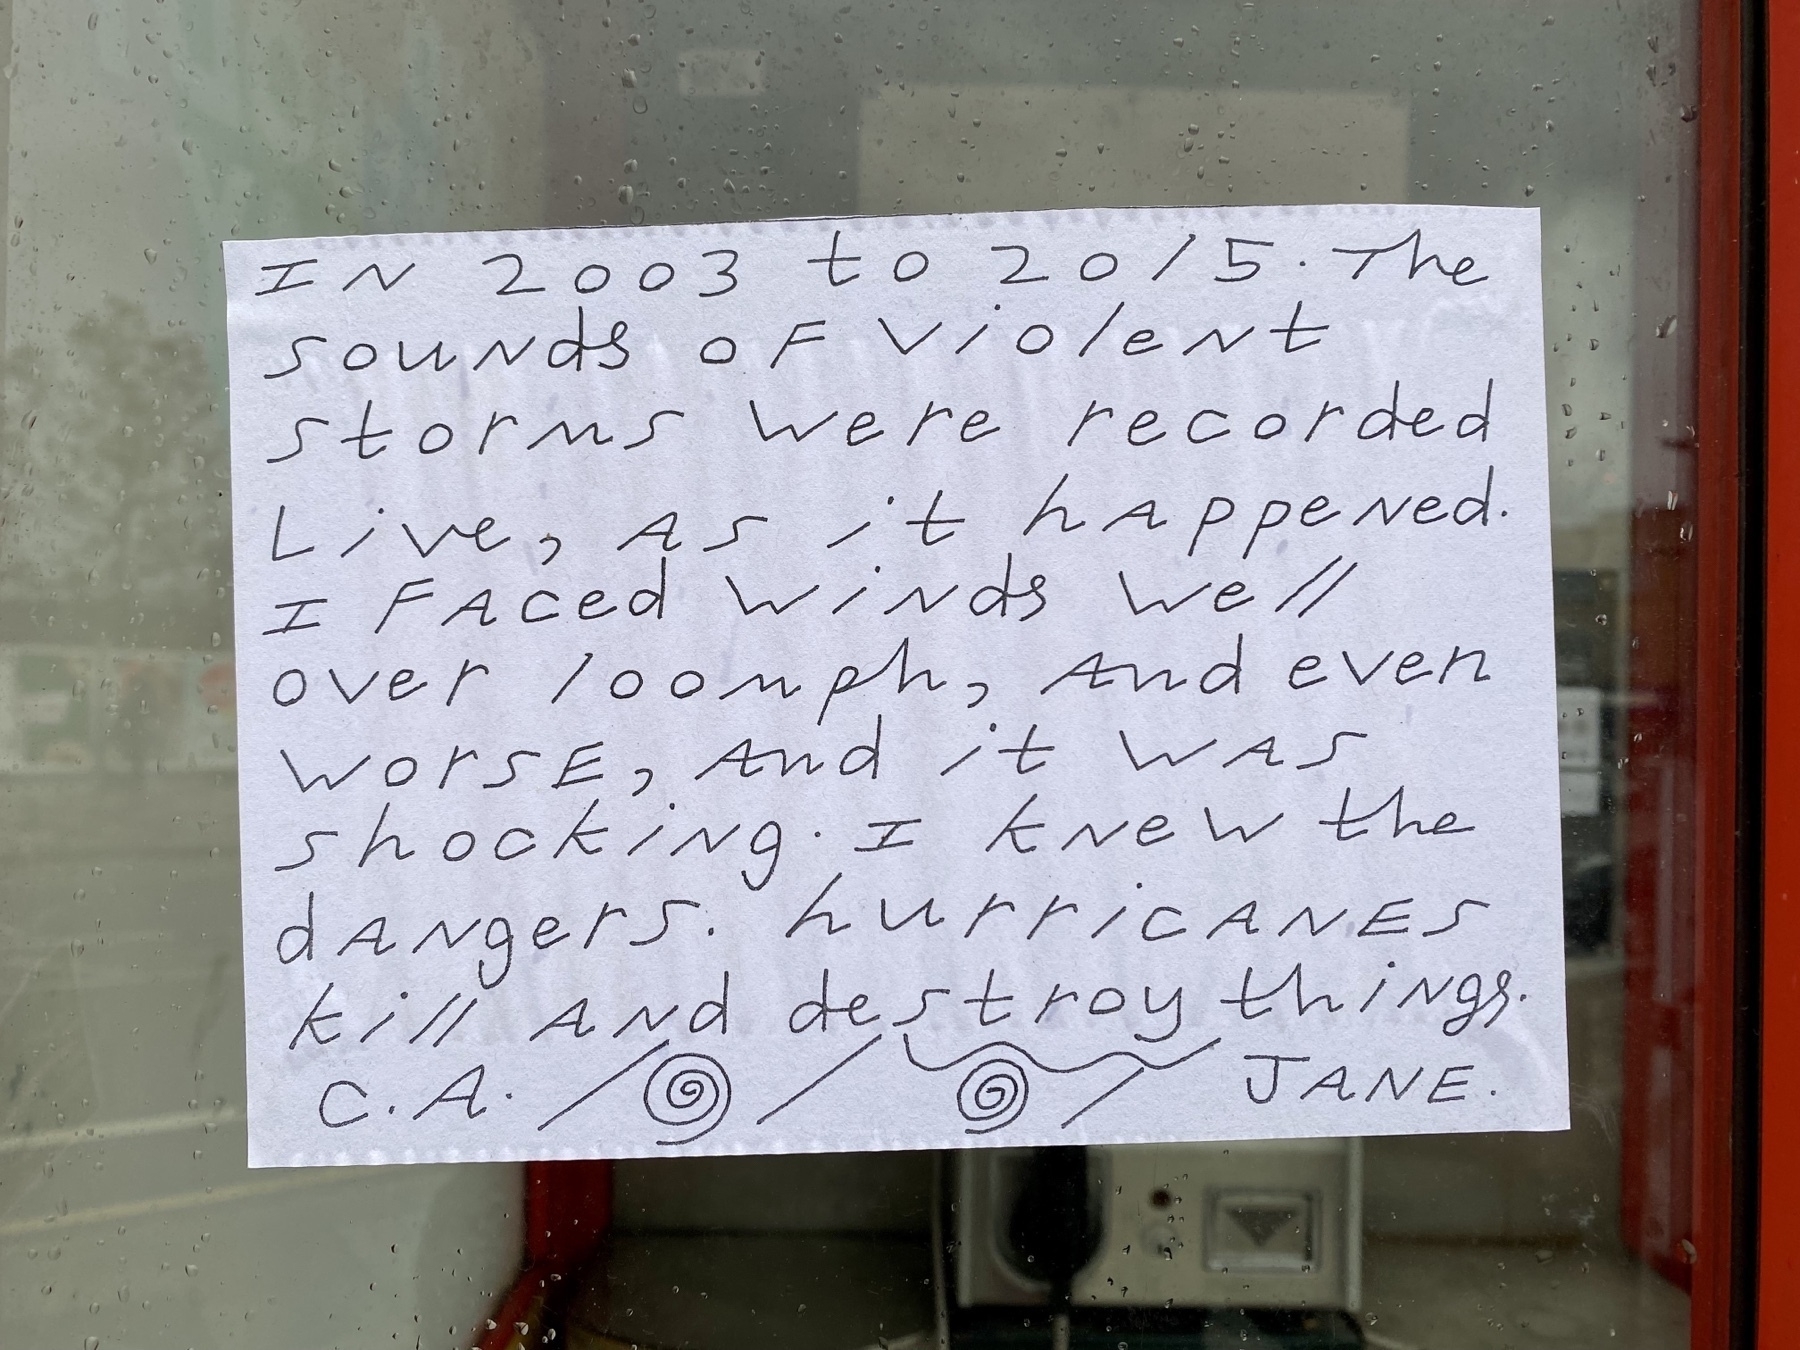 IN 2003 to 2015. The
sounds of violent
storms were recorded
Live, as it happened.
I faced winds well
over 100mph, and even
worse, and it was
shocking. I knew the
dangers. hurricanes
kill and destroy things.
C.A. JANE.